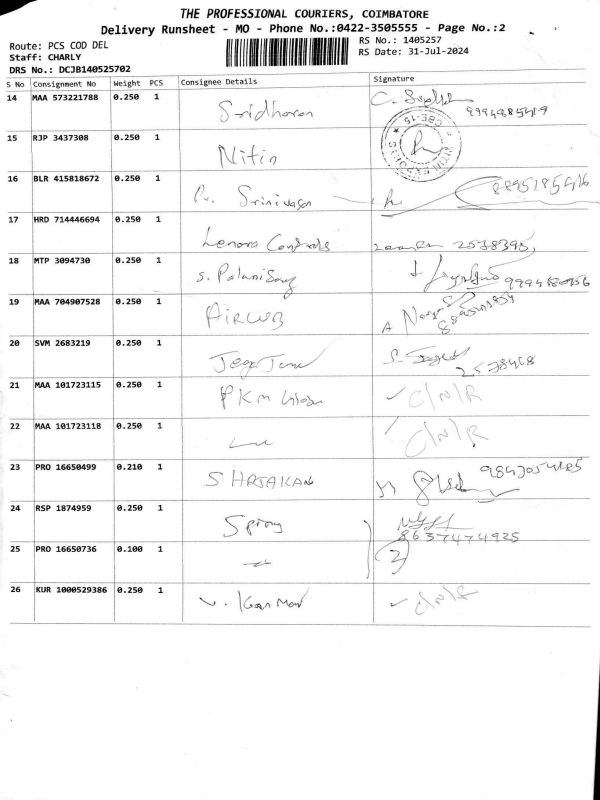 THE PROFESSIONAL COURIERS, COIMBATORE
Delivery Runsheet - MO - Phone No.:0422-3505555 - Page No.:2
Route: PCS COD DEL
RS No.: 1405257
Staff: CHARLY
RS Date: 31-Jul-2024
DRS No.: DCJB140525702
S No Consignment No Weight PCS Consignee Details Signature
14 MAA 573221788 0.250 1 Sridharan
15 RJP 3437308 0.250 1 Nitin
16 BLR 415818672 0.250 1 Srinivasan 8895185416
17 HRD 714446694 0.250 1 Lenova Controls 2538395
18 MTP 3094730 0.250 1 S. Palanisamy
19 MAA 704907528 0.250 1 A
20 SVM 2683219 0.250 1 S. 2578468
21 MAA 101723115 0.250 1 PKM C/N/R
22 MAA 101723118 0.250 1 C/N/R
23 PRO 16650499 0.210 1
24 RSP 1874959 0.250 1 8637474925
25 PRO 16650736 0.100 1 2
26 KUR 1000529386 0.250 1 C/N/R